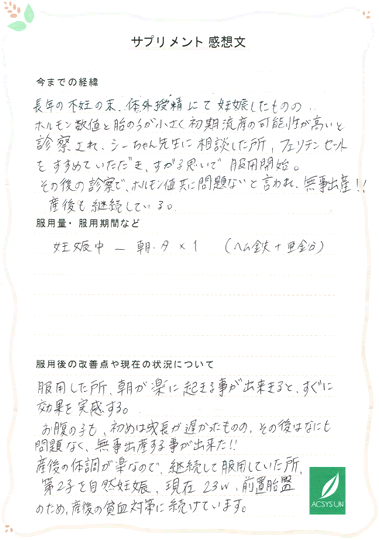 サプリメント 感想文
今までの経緯
長年の不妊の末、体外授精にて妊娠したものの、
ホルモン数値と胎のうが小さく初期流産の可能性が高いと
診察され、シーちゃん先生に相談した所、フェリチンセット
をすすめていただき、すがる思いで服用開始。
その後の診察で、ホルモン値共に問題ないと言われ、無事出産!!
産後も継続している。
服用量・服用期間など
妊娠中 ー 朝・夕×1 (ヘム鉄+亜鉛)
服用後の改善点や現在の状況について
服用した所、朝が楽に起きる事が出来きると、すぐに
効果を実感する。
お腹の子も、初めは成長が遅かったものの、その後はなにも
問題なく、無事出産する事が出来た!!
産後の体調が楽なので、継続して服用していた所、
第2子を自然妊娠、現在23w、前置胎盤
のため、産後の貧血対策に続けています。
ACSYSUN